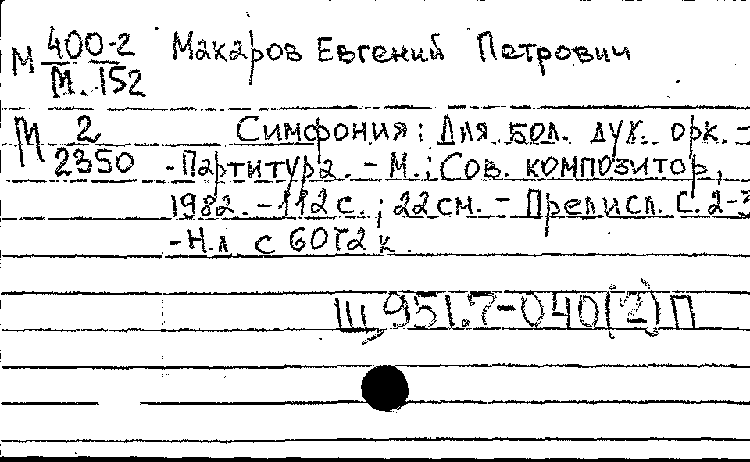 М 400-2 Макаров Евгений Петрович
М. 152
М 2 Симфония: Для бол. дух. орк. -
2350 - Партитура. - М.: Сов. композитор,
1982. - 112 с.; 22 см. - Предисл. С. 2-3
- Н.д с 6072 к.
Щ 951.7-040(2) П